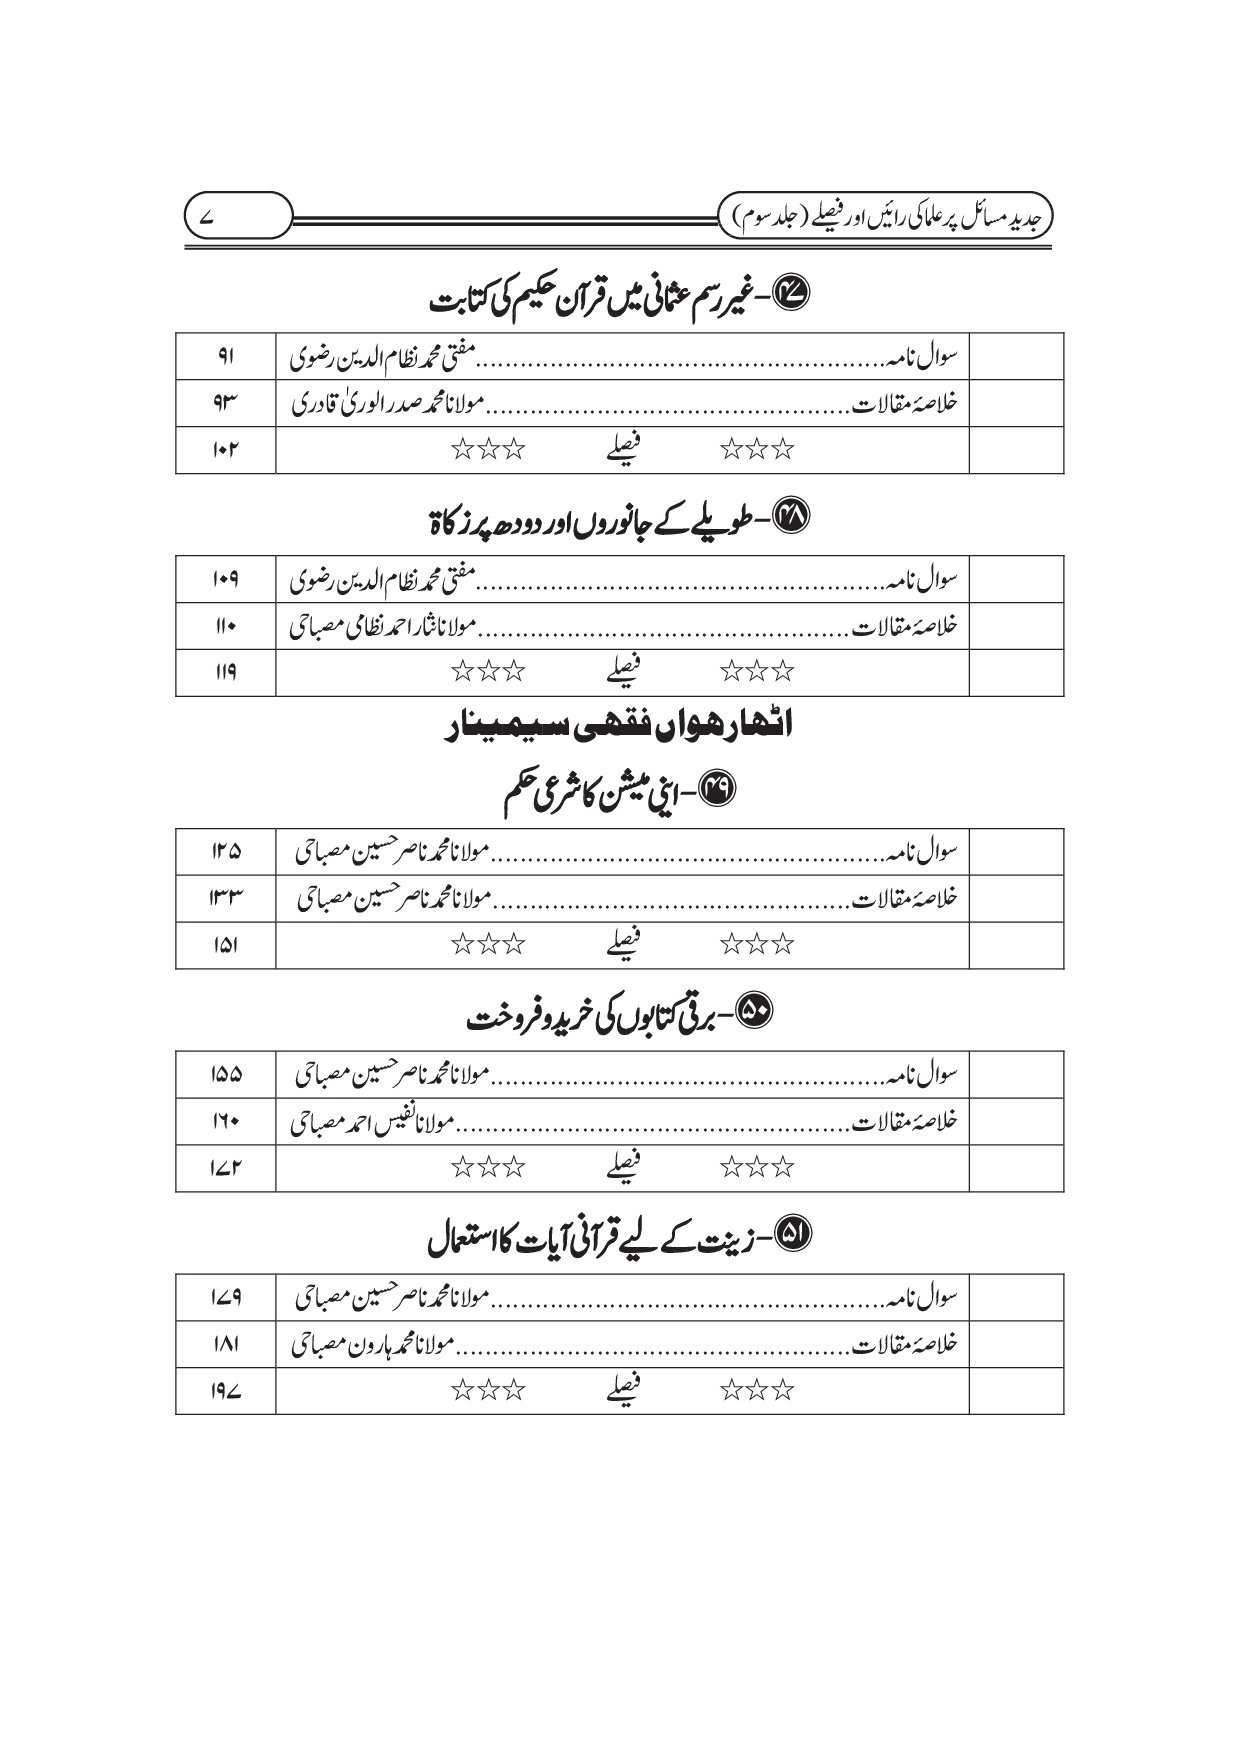 جدید مسائل پر علما کی رائیں اور فیصلے (جلد سوم) ۷
۴۷-غیر رسم عثمانی میں قرآن حکیم کی کتابت
سوال نامہ......................................................مفتی محمد نظام الدین رضوی ۹۱
خلاصۂ مقالات................................................مولانا محمد صدر الوریٰ قادری ۹۳
☆☆☆ فیصلے ☆☆☆ ۱۰۲
۴۸-طویلے کے جانوروں اور دودھ پر زکاۃ
سوال نامہ......................................................مفتی محمد نظام الدین رضوی ۱۰۹
خلاصۂ مقالات.................................................مولانا نثار احمد نظامی مصباحی ۱۱۰
☆☆☆ فیصلے ☆☆☆ ۱۱۹
اٹھارھواں فقھی سیمینار
۴۹-اینی میشن کا شرعی حکم
سوال نامہ....................................................مولانا محمد ناصر حسین مصباحی ۱۲۵
خلاصۂ مقالات...............................................مولانا محمد ناصر حسین مصباحی ۱۳۳
☆☆☆ فیصلے ☆☆☆ ۱۵۱
۵۰-برقی کتابوں کی خرید و فروخت
سوال نامہ....................................................مولانا محمد ناصر حسین مصباحی ۱۵۵
خلاصۂ مقالات....................................................مولانا نفیس احمد مصباحی ۱۶۰
☆☆☆ فیصلے ☆☆☆ ۱۷۲
۵۱-زینت کے لیے قرآنی آیات کا استعمال
سوال نامہ....................................................مولانا محمد ناصر حسین مصباحی ۱۷۹
خلاصۂ مقالات....................................................مولانا محمد ہارون مصباحی ۱۸۱
☆☆☆ فیصلے ☆☆☆ ۱۹۷